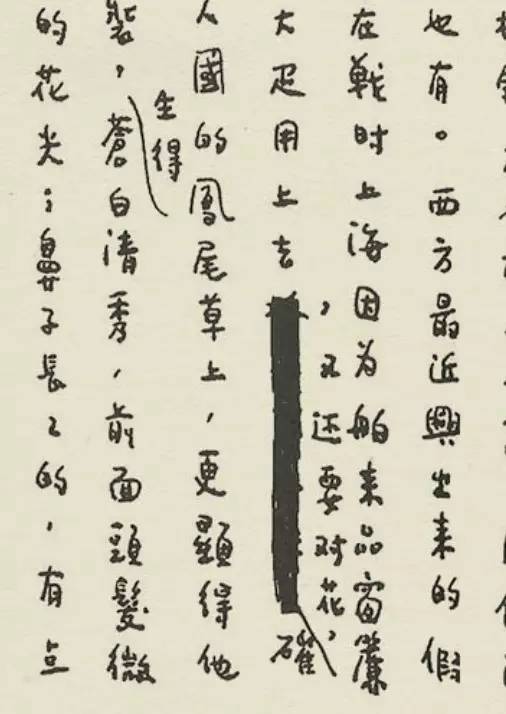 也有。西方最近興出来的假
在戰时上海因为舶来品窗簾
，又还要对花，
大疋用上去 確
國的鳳尾草上，更顯得他
生得
裝，蒼白清秀，前面頭髮微
的花尖；鼻子長〻的，有点